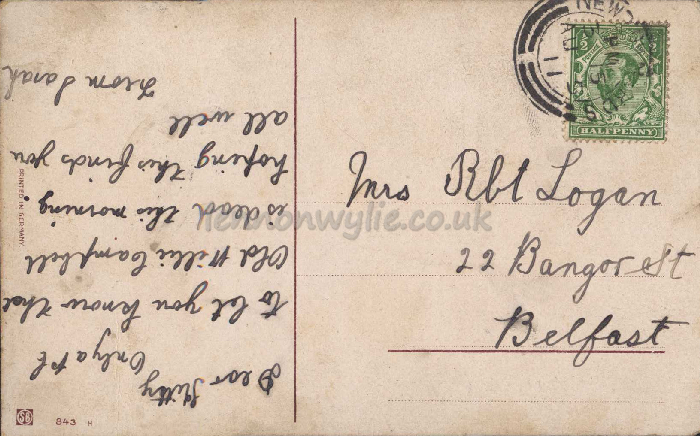 Dear Kitty
Only a P.C.
to let you know that
Old Willie Campbell
is dead this morning
hoping this finds you
all well
From Sarah
Mrs Rbt Logan
22 Bangor St
Belfast
HALFPENNY
PRINTED IN GERMANY
843 H
lennonwylie.co.uk